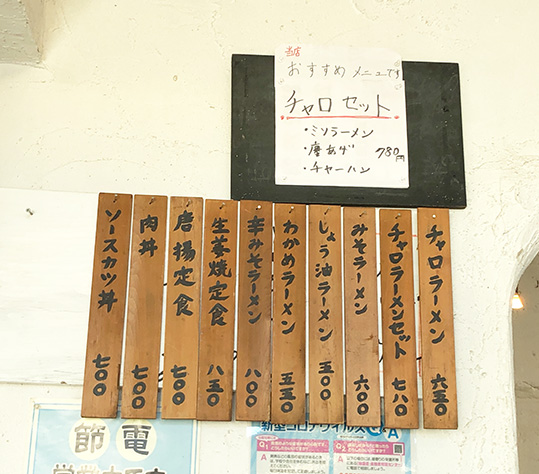 当店
おすすめ メニューです
チャロ セット
・ミソラーメン
・唐あげ 780円
・チャーハン
チャロラーメン 六五〇
チャロラーメンセット 七八〇
みそラーメン 六〇〇
しょう油ラーメン 五〇〇
わかめラーメン 五五〇
辛みそラーメン 八〇〇
生姜焼定食 八五〇
唐揚定食 七〇〇
肉丼 七〇〇
ソースカツ丼 七〇〇
節電
新型コロナウイルス
Q1
A
Q2
A